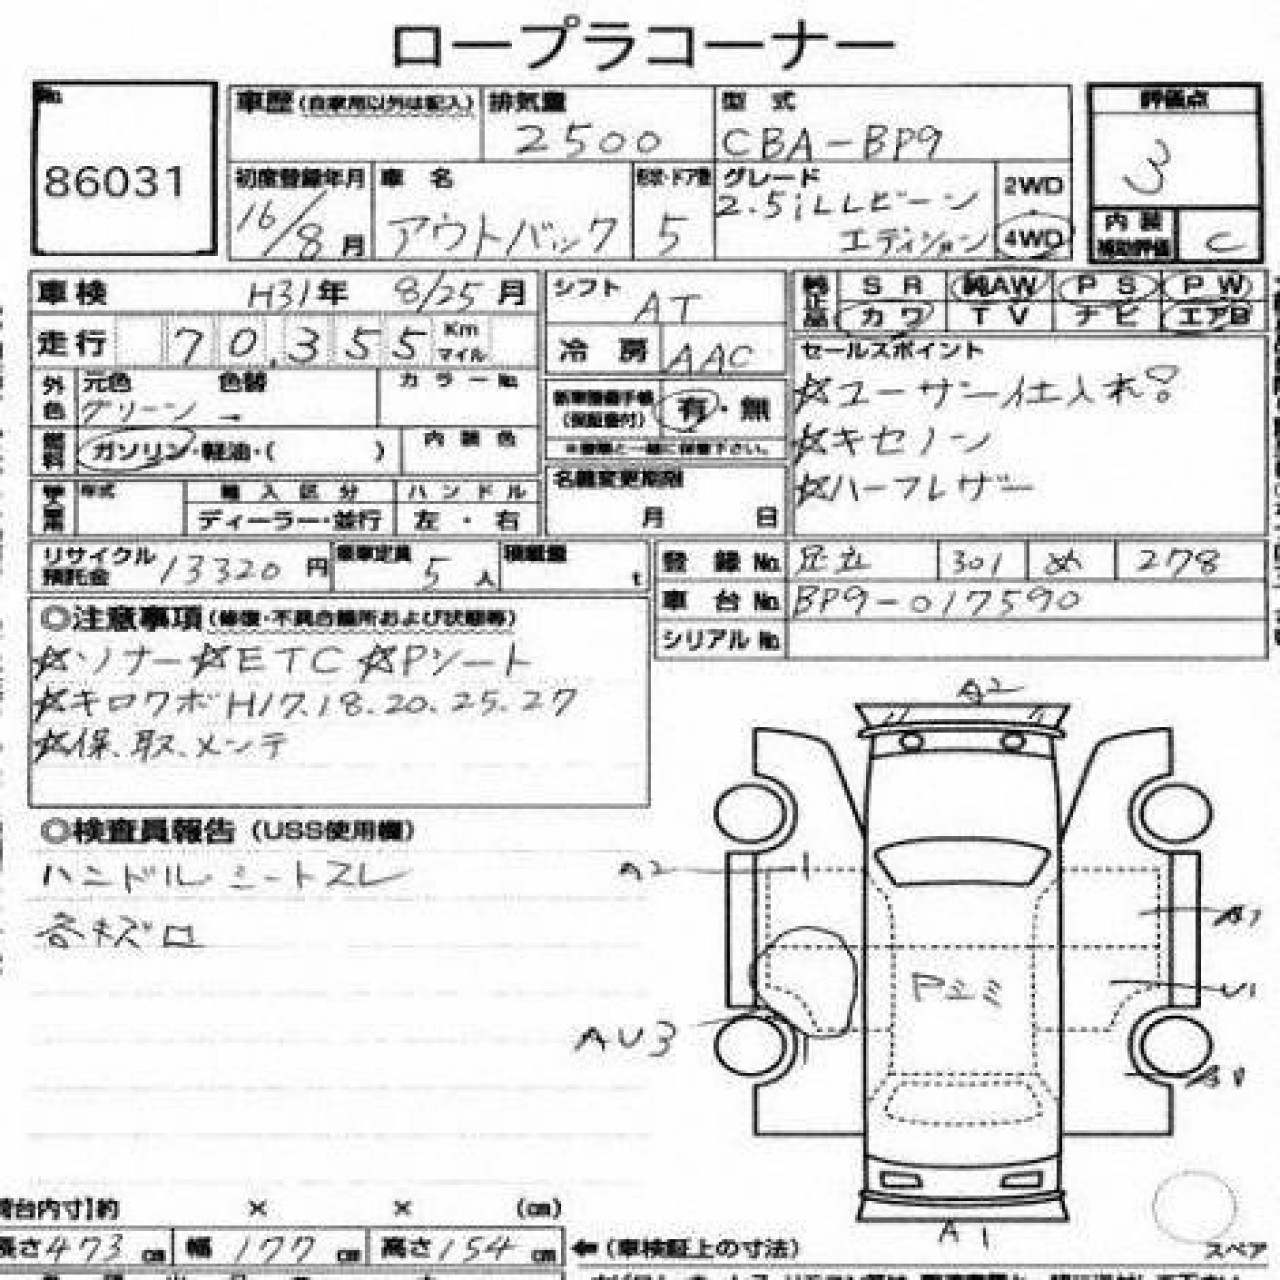 ロープラコーナー
No. 86031
車歴(自家用以外は記入) 排気量 2500 型式 CBA-BP9
評価点 3
初度登録年月 16/8月 車名 アウトバック 形状・ドア数 5 グレード 2.5iLLビーンエディション 2WD・4WD
内装補助評価 C
車検 H31年 8/25月
シフト AT
純正品 SR 純AW PS PW
カワ TV ナビ エアB
走行 70,355 Km マイル
冷房 AAC
セールスポイント
☆ユーザー仕入れ!
☆キセノン
☆ハーフレザー
外色 元色 グリーン → 色替 カラーNo.
新車整備手帳(保証書付) 有・無
※書類と一緒に保管下さい。
燃料 ガソリン・軽油・( ) 内装色
名義変更期限 月 日
年式 輸入区分 ハンドル
ディーラー・並行 左・右
リサイクル預託金 13320円 乗車定員 5人 積載量 t
登録No. 足立 301 め 278
車台No. BP9-017590
シリアルNo.
◎注意事項(修復・不具合箇所および状態等)
☆ソナー☆ETC☆Pシート
☆キロクボH17.18.20.25.27
☆保、取、メンテ
◎検査員報告(USS使用欄)
ハンドル シートスレ
各キズロ
A2
A2
A1
Pミミ
U1
AU3
A1
A1
荷台内寸】約 × × (cm)
長さ473cm 幅177cm 高さ154cm ←(車検証上の寸法)
スペア